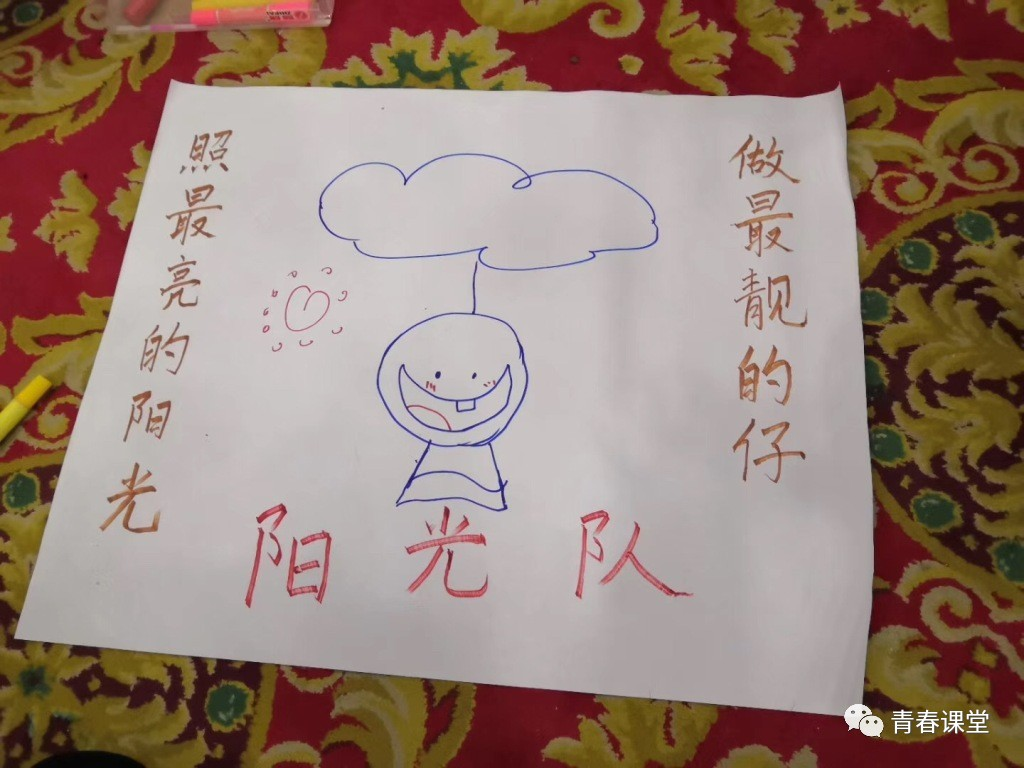 照最亮的阳光
做最靓的仔
阳光队
青春课堂